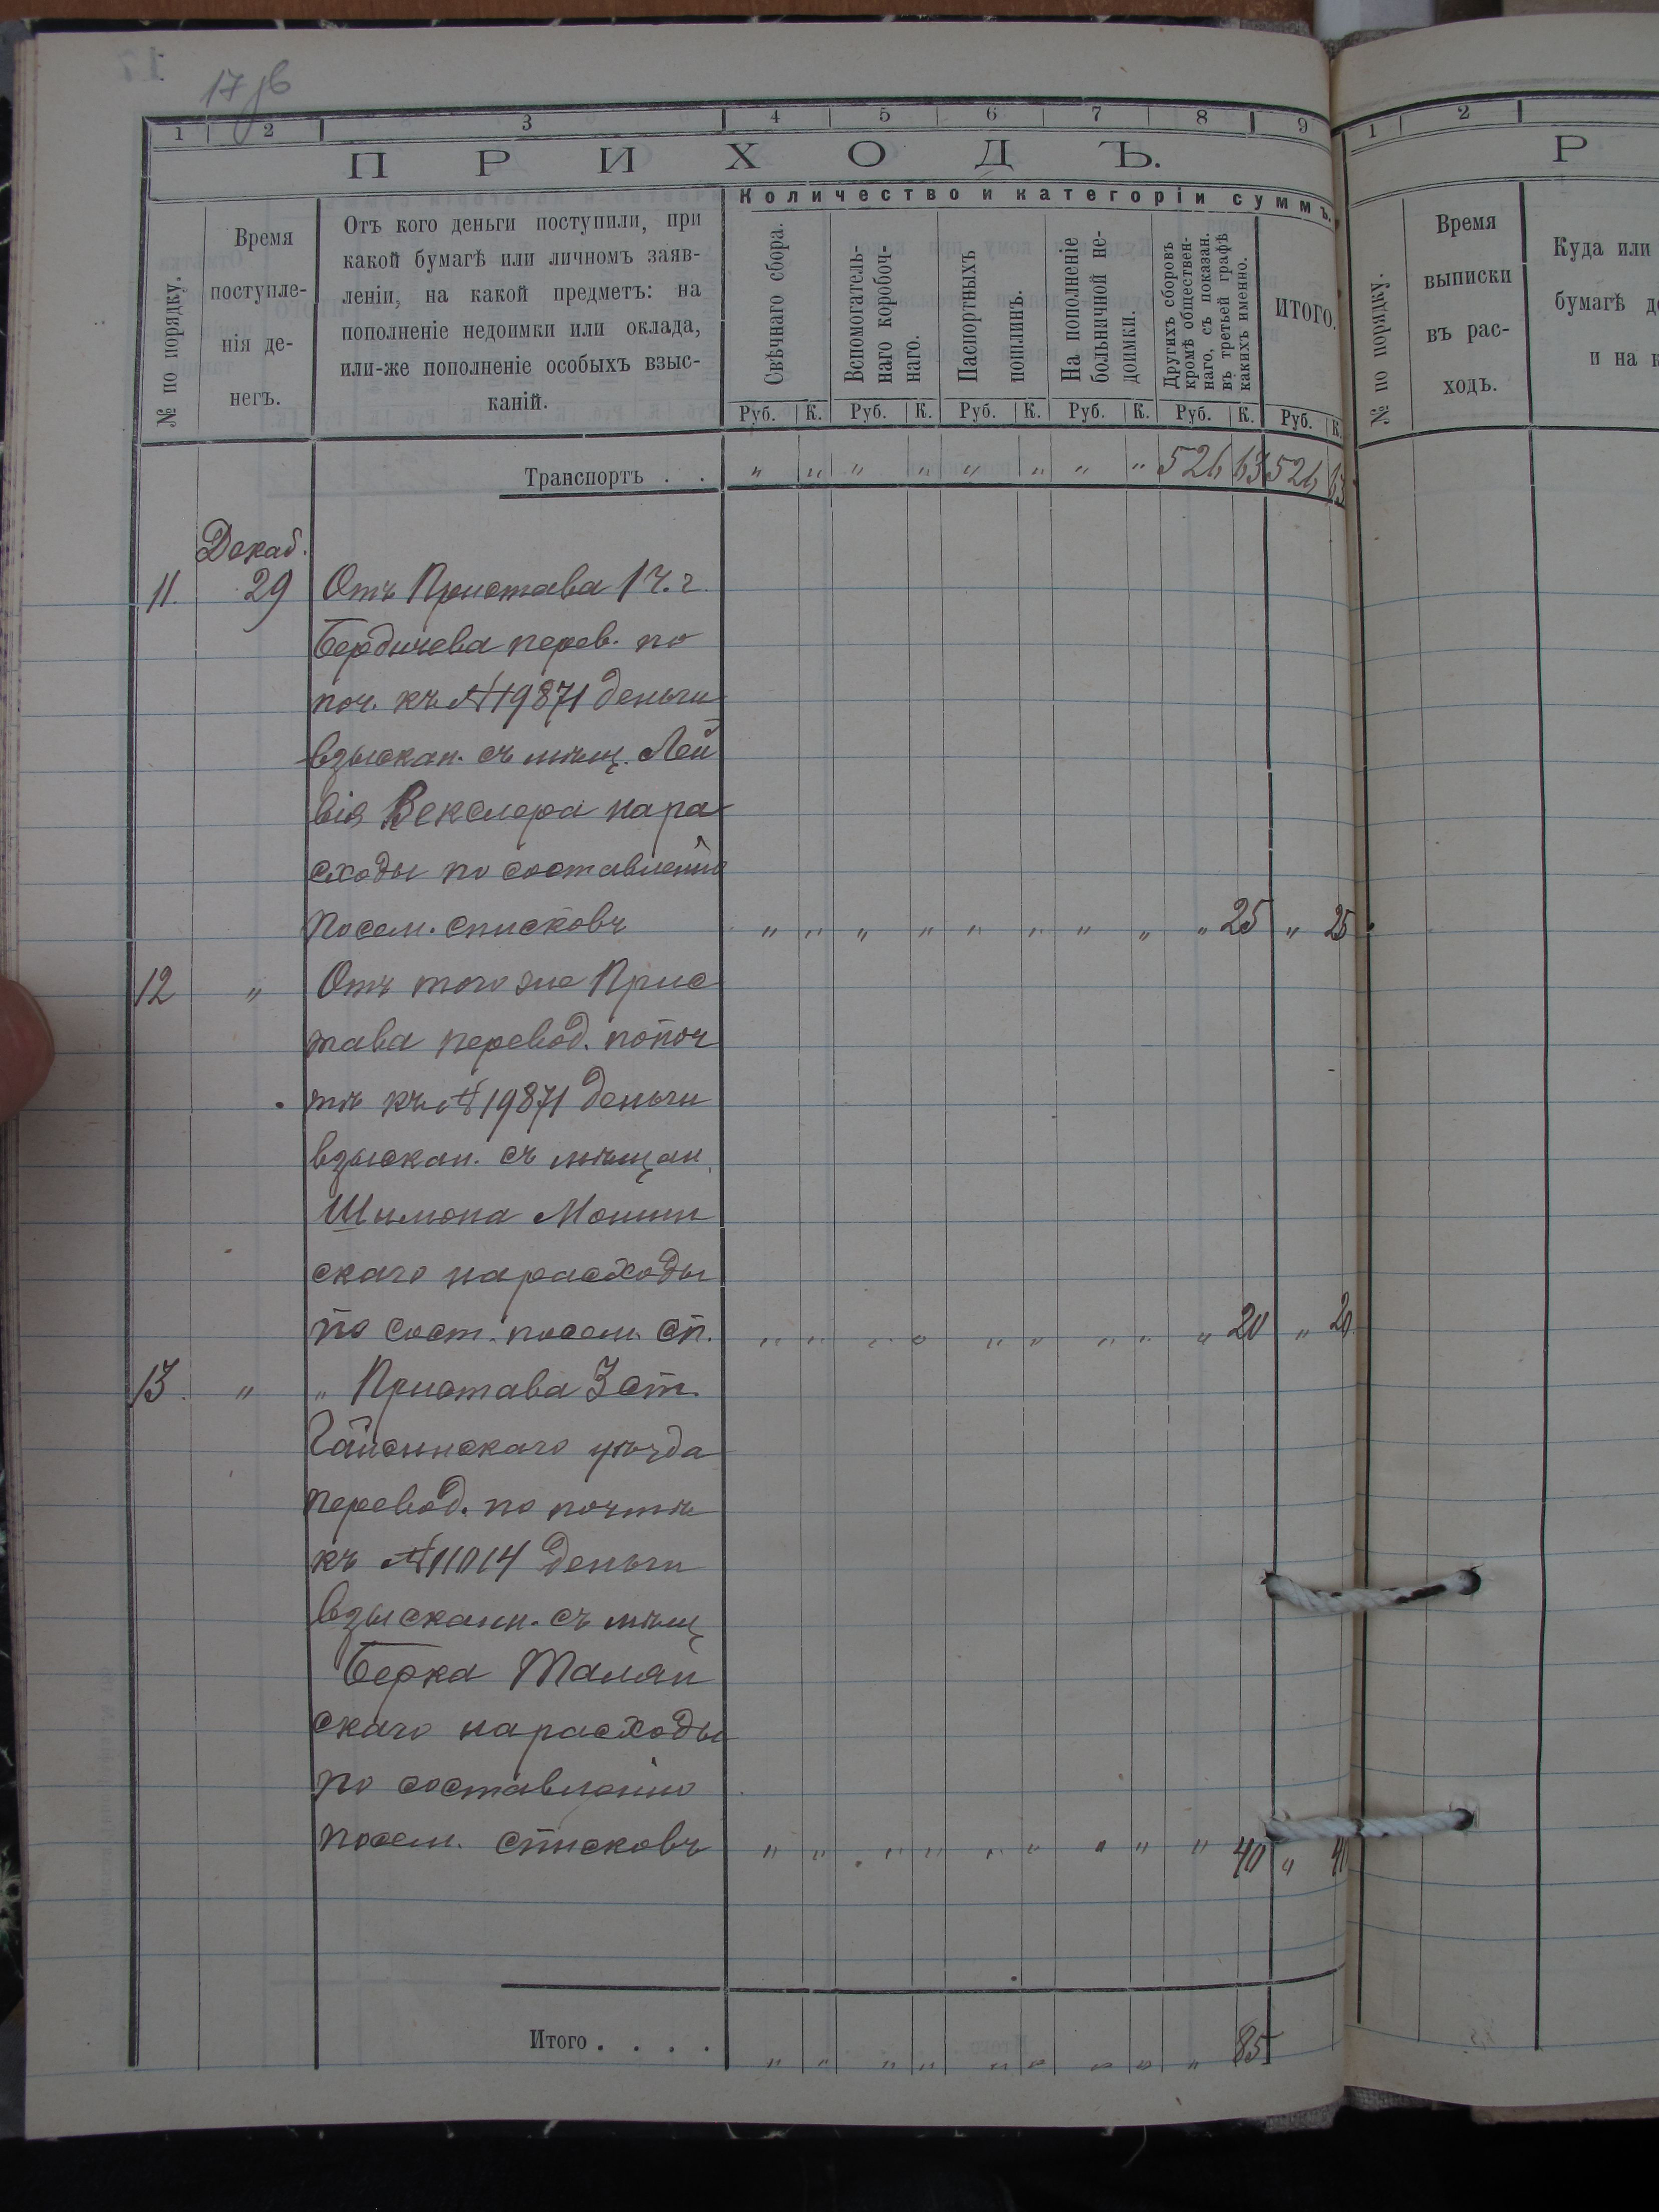 17 зв
1 2 3 4 5 6 7 8 9
П Р И Х О Д Ъ.
Количество и категоріи суммъ.
№ по порядку.
Время
поступле-
нія де-
негъ.
Отъ кого деньги поступили, при
какой бумагѣ или личномъ заяв-
леніи, на какой предметъ: на
пополненіе недоимки или оклада,
или-же пополненіе особыхъ взыс-
каній.
Свѣчнаго сбора.
Вспомогатель-
наго коробоч-
наго.
Паспортныхъ
пошлинъ.
На пополненіе
больничной не-
доимки.
Другихъ сборовъ
кромѣ обществен-
наго, съ показан.
въ третьей графѣ
какихъ именно.
ИТОГО.
Руб. К. Руб. К. Руб. К. Руб. К. Руб. К. Руб. К.
Транспортъ . . „ „ „ „ „ „ „ „ 526 63 526 63
Декаб.
11. 29 Отъ Пристава 1 ч. г.
Бердичева перев. по
поч. къ № 19871 деньги
взыскан. съ мѣщ. Лей
вія Векслера на ра
сходы по составленію
посем. списковъ „ „ „ „ „ „ „ „ „ 25 „ 25
12 „ Отъ того же Прис
тава перевод. по поч
тѣ къ № 19871 деньги
взыскан. съ мѣщан.
Шимона Мошин
скаго на расходы
по сост. посем. сп. „ „ „ „ „ „ „ „ „ 20 „ 20
13. „ „ Пристава 3 ст.
Гайсинскаго уѣзда
перевод. по почтѣ
къ № 11014 деньги
взыскан. съ мѣщ
Берка Талян
скаго на расходы
по составленію
посем. списковъ „ „ „ „ „ „ „ „ „ 40 „ 40
Итого . . . . „ „ „ „ „ „ „ „ „ 85
1 2
Р
№ по порядку.
Время
выписки
въ рас-
ходъ.
Куда или
бумагѣ
и на